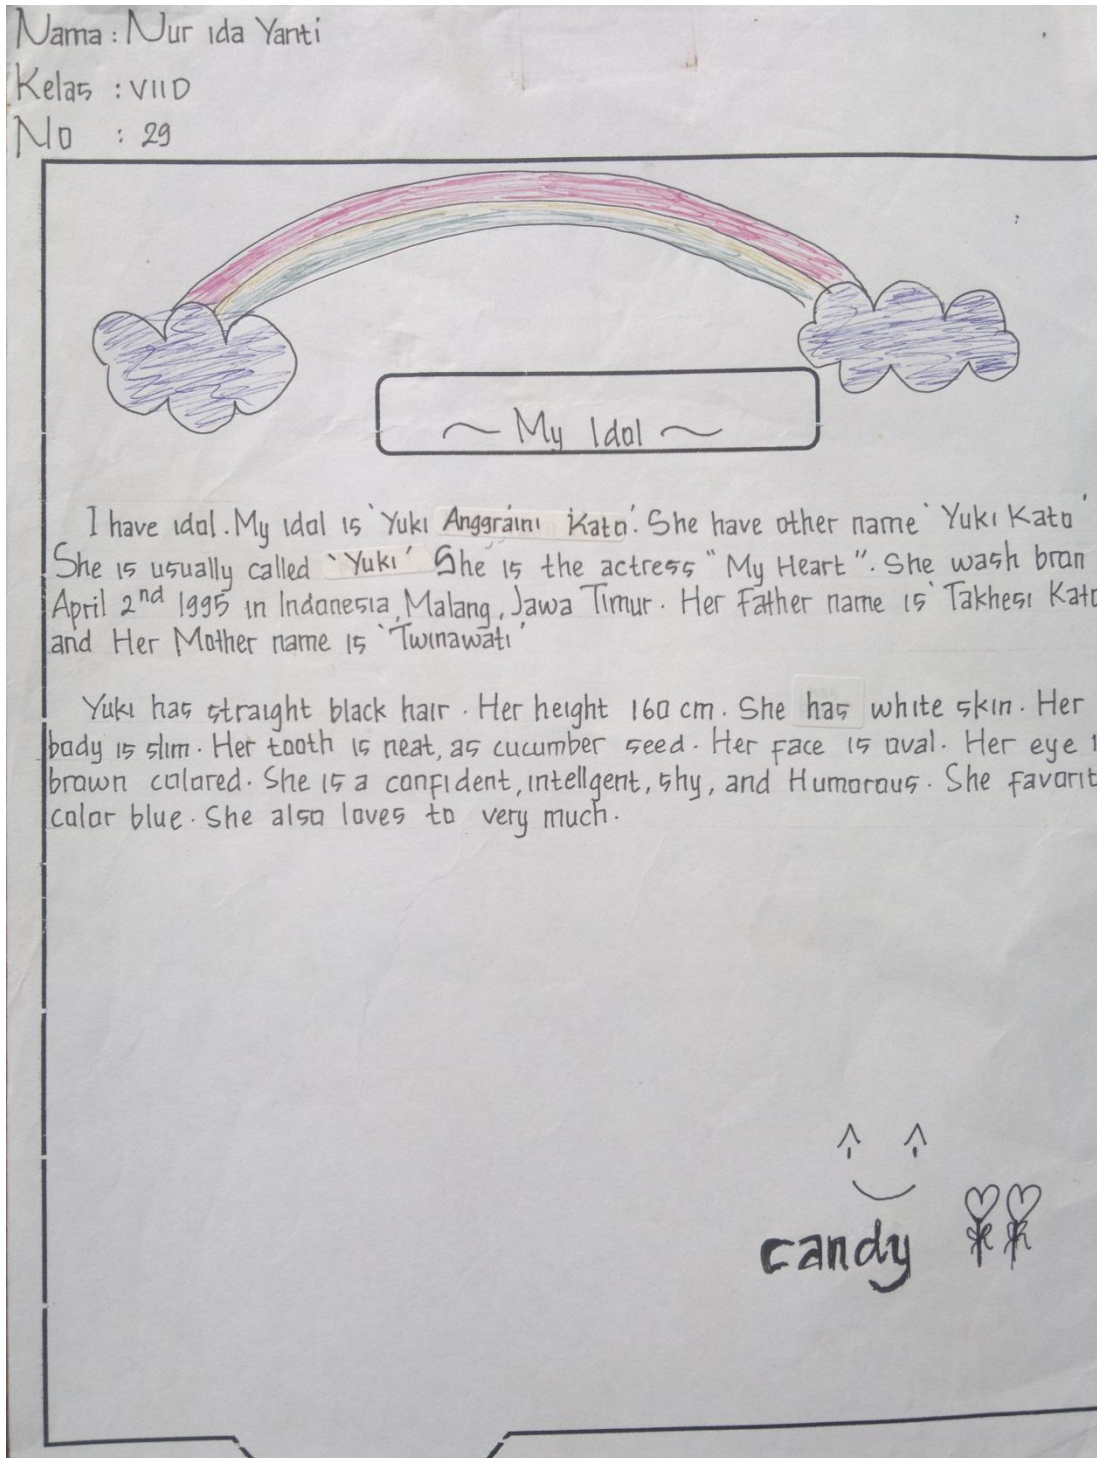 Nama : Nur Ida Yanti
Kelas : VIID
No : 29
~ My Idol ~
I have idol. My idol is `Yuki Anggraini Kato'. She have other name `Yuki Kato'
She is usually called `Yuki' She is the actress "My Heart". She wash bran
April 2nd 1995 in Indonesia, Malang, Jawa Timur. Her Father name is `Takhesi Kato
and Her Mother name is `Twinawati'
Yuki has straight black hair. Her height 160 cm. She has white skin. Her
body is slim. Her tooth is neat, as cucumber seed. Her face is oval. Her eye
brown colored. She is a confident, intellgent, shy, and Humorous. She favorit
color blue. She also loves to very much.
candy